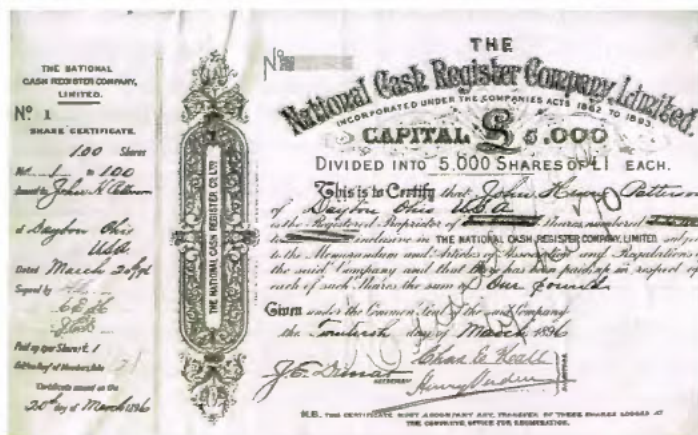 THE NATIONAL
CASH REGISTER COMPANY,
LIMITED.
No 1
SHARE CERTIFICATE.
100 Shares
Nos. 1 to 100
Issued to John H Patterson
of Dayton Ohio
USA
Dated March 20th 96
Signed by
Paid up per Share £ 1
Certificate issued on the
20th day of March 1896
THE NATIONAL CASH REGISTER CO. LTD
No
THE
National Cash Register Company Limited
INCORPORATED UNDER THE COMPANIES ACTS 1862 TO 1893.
CAPITAL £ 5.000
DIVIDED INTO 5,000 SHARES OF £1 EACH.
This is to Certify that John Henry Patterson
of Dayton Ohio USA
is the Registered Proprietor of Shares numbered
to inclusive in THE NATIONAL CASH REGISTER COMPANY, LIMITED subject
to the Memorandum and Articles of Association and Regulations of
the said Company and that there has been paid up in respect of
each of such Shares the sum of One pound
Given under the Common Seal of the said Company
the day of March 1896
SECRETARY
N.B. THIS CERTIFICATE MUST ACCOMPANY ANY TRANSFER OF THESE SHARES LODGED AT
THE COMPANY'S OFFICE FOR REGISTRATION.